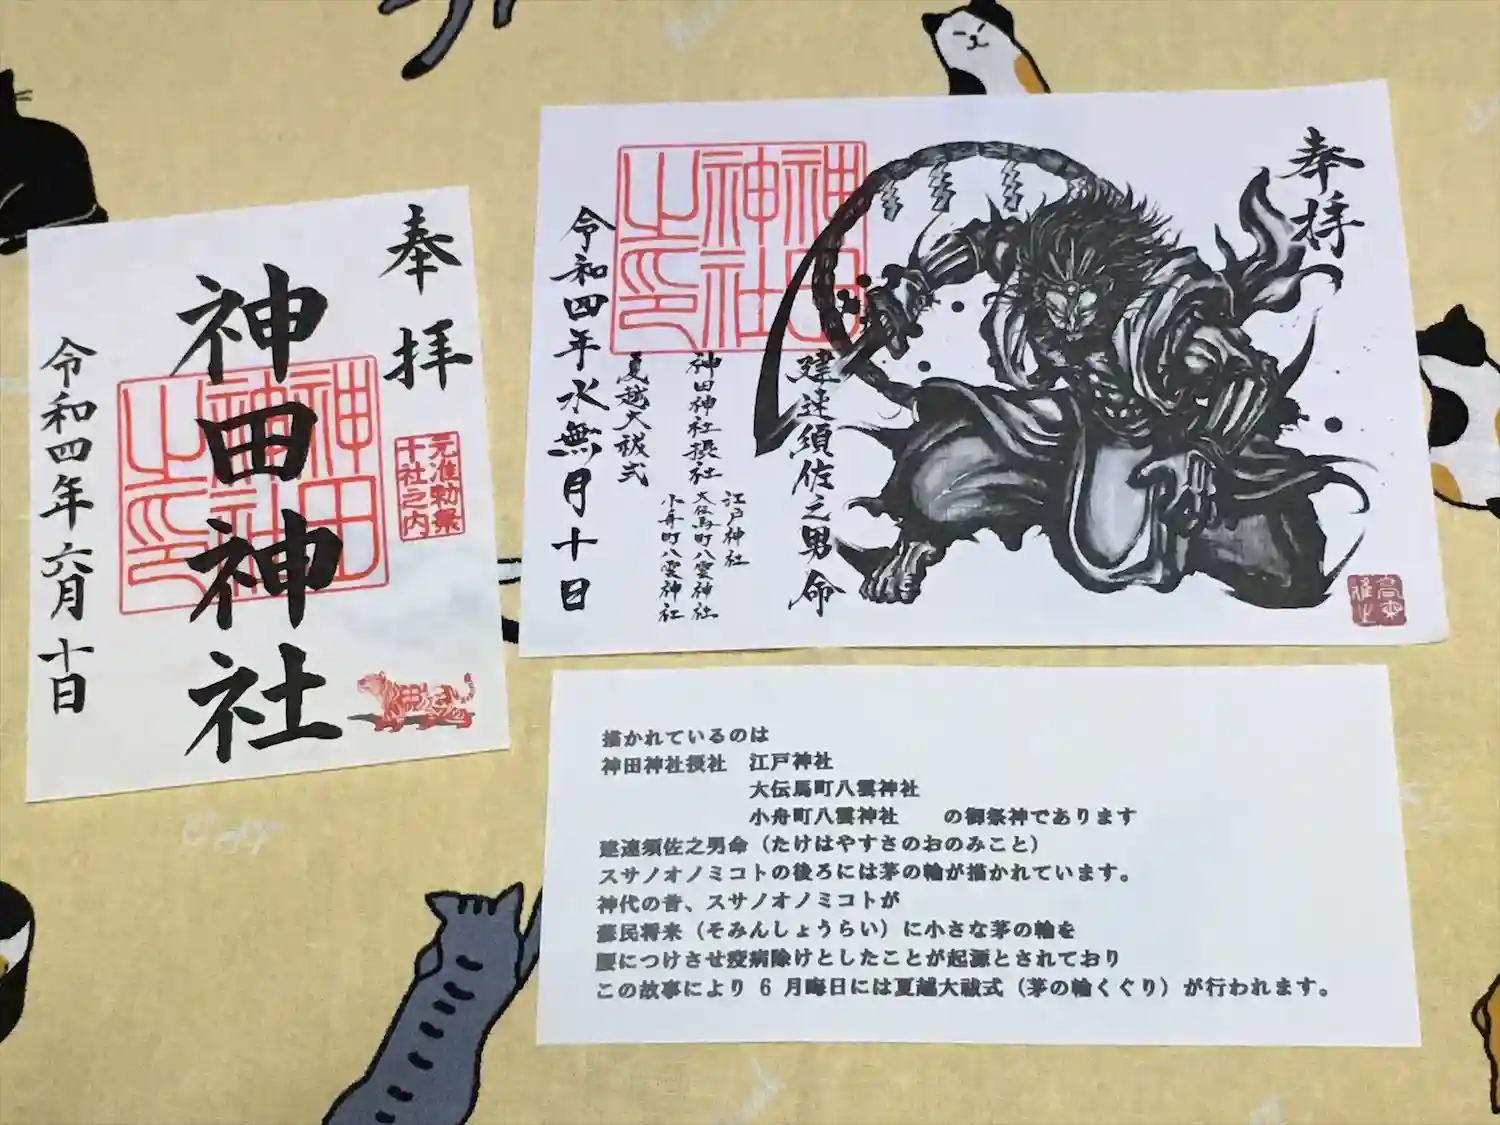 奉拝
元准勅祭
十社之内
神田神社
神田
神社
之印
令和四年六月十日
奉拝
建速須佐之男命
江戸神社
神田神社摂社
大伝馬町八雲神社
小舟町八雲神社
夏越大祓式
神田
神社
之印
令和四年水無月十日
描かれているのは
神田神社摂社　江戸神社
大伝馬町八雲神社
小舟町八雲神社　　の御祭神であります
建速須佐之男命（たけはやすさのおのみこと）
スサノオノミコトの後ろには茅の輪が描かれています。
神代の昔、スサノオノミコトが
蘇民将来（そみんしょうらい）に小さな茅の輪を
腰につけさせ疫病除けとしたことが起源とされており
この故事により 6 月晦日には夏越大祓式（茅の輪くぐり）が行われます。